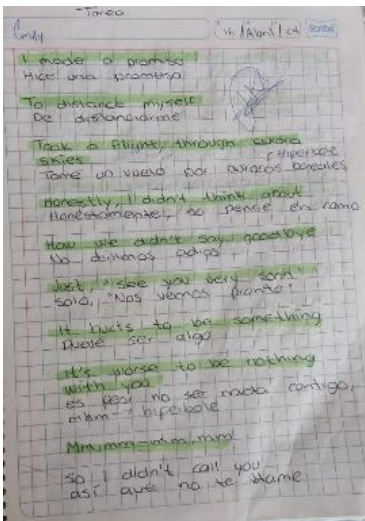 -Tarea
Emily
Scribe
I made a promise
Hice una promesa
To distance myself
De distanciarme
Took a flight, through aurora
skies
(Hiperbole
Tome un vuelo por auroras boreales
Honestly, I didn't think about
Honestamente, no pense en como
How we didn't say goodbye
No dijimos adios
Just, "see you very soon"
solo, "Nos vemos pronto"
It hurts to be something
Duele ser algo
It's worse to be nothing
with you
es peor no ser nada contigo,
mhm- hiperbole
so I didn't call you
asi que no te llame